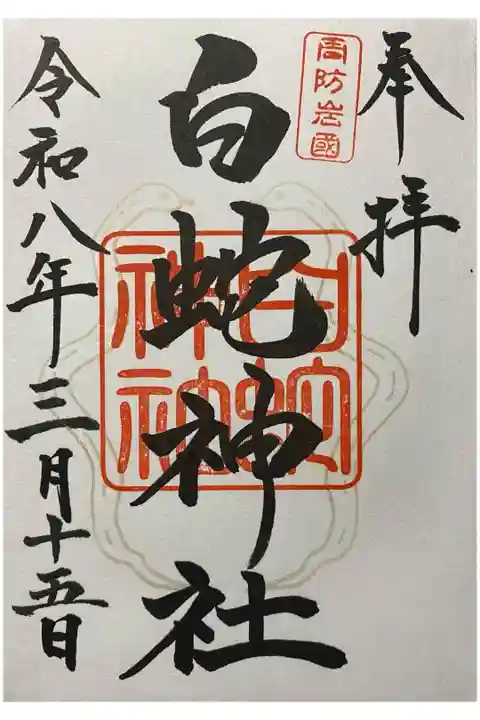 奉拝
周防岩國
白蛇神社
白蛇
神社
令和八年三月十五日